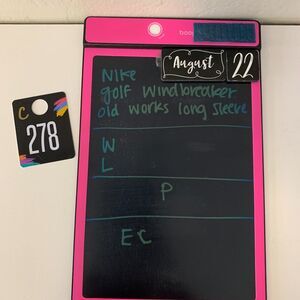 boo
August 22
Nike
golf windbreaker
old works long sleeve
C
278
W
L
P
EC